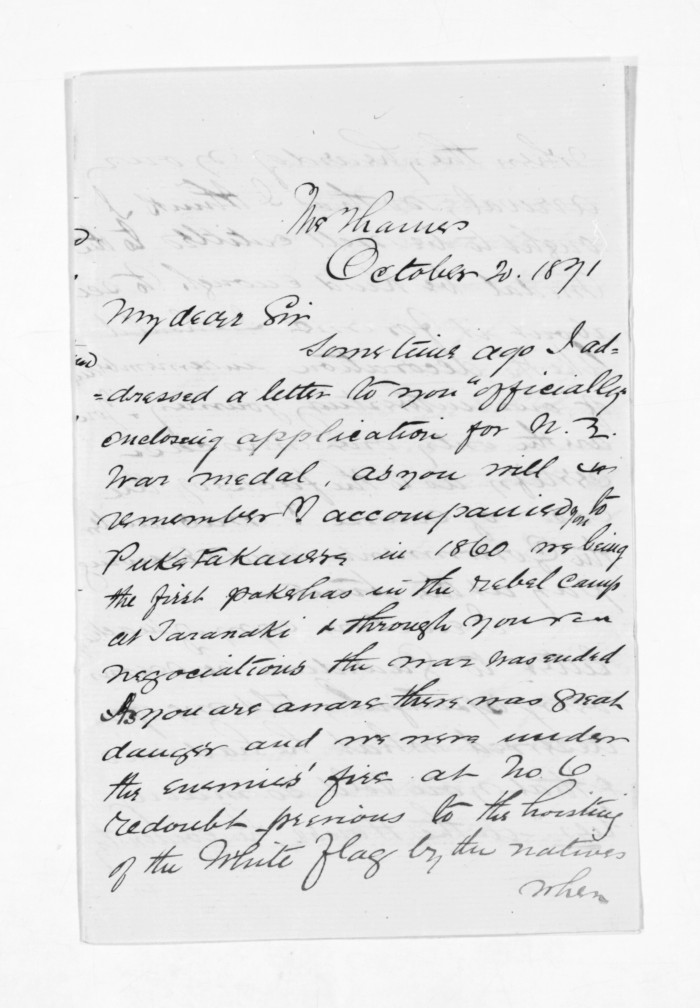 The Thames
October 20. 1871
My dear Sir
Sometime ago I ad=
=dressed a letter to you "officially"
enclosing application for N. Z.
War medal, as you will
remember I accompanied you to
Puketakauere in 1860 we being
the first pakehas in the rebel camp
at Taranaki & through your
negociations the war was ended
As you are aware there was great
danger and we were under
the enemies' fire at No 6
redoubt previous to the hoisting
of the White Flag by the natives
when